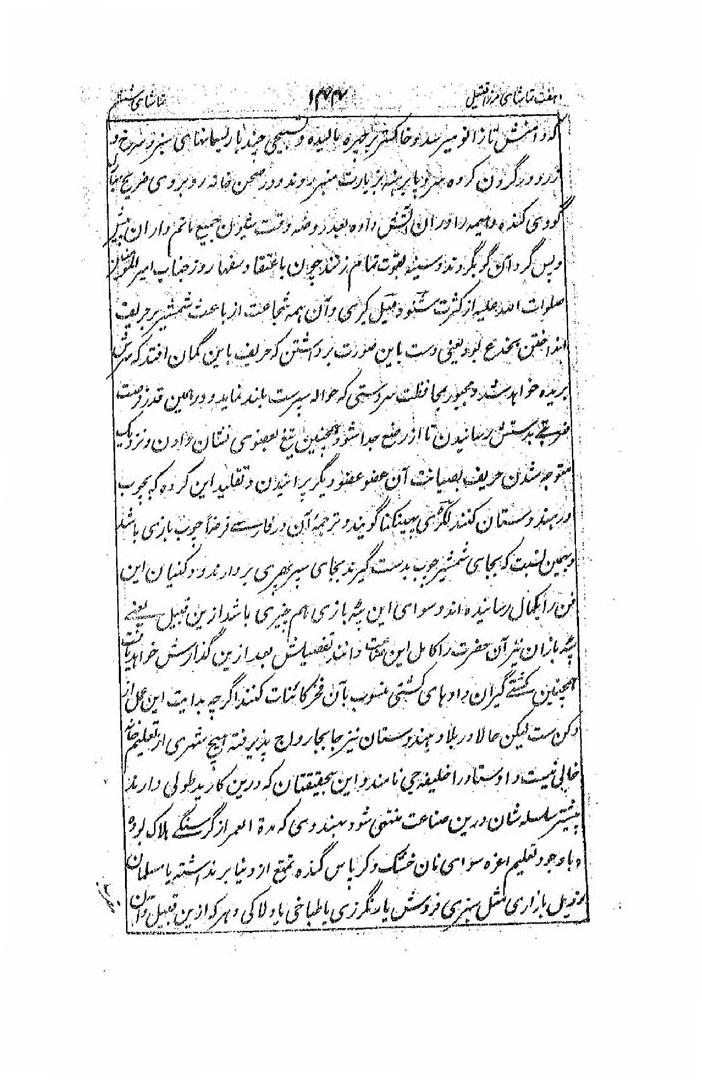 هفت تماشای مرزا قتیل ۱۴۴ تماشای ششم
که دامنش تا زانو میرسد و خاکستر بر چهره مالیده و تسبیحی چند با ریسمانهای سبز و سرخ و
زرد در گردن کرده سر و پا برهنه بزیارت میروند و در صحن خانه روبروی ضریح
گودی کنده و هیمه را در ان آتش داده بعد روضه وقت شیون جمیع ماتم داران پیش
و پس گرد آن گو بگردند و سینه بقوت تمام زنند چون باعتقاد سفها روز جناب امیر المومنین
صلوات الله علیه از کثرت شنو دمیل کرسی و آن همه شجاعت از باعث شمشیر بر حریف
انداختن بخدع بود یعنی دست باین صورت برداشتن که حریف باین گمان افتد که سرش
بریده خواهد شد و مجبور بمحافظت سر دستی که حواله سپرست بلند نماید و در همین قدر فرصت
ضربتے بدستش رسانیدن تا از رضع جدا شود و همچنین تیغ بعضوی نشان دادن و نزدیک
متوجه شدن حریف بصیانت آن عضو عضو دیگر پرانیدن و تقلید این گروه که بچوب
در هندوستان کنند لکڑی پھینکنا گویند و ترجمه آن در فارسے فرضاً چوب بازی باشد
و بهمین نسبت که بجای شمشیر چوب بدست گیرند بجای سپر پھری بردارند و دکنیان این
فن را بکمال رسانیده اند و سوای این پٹه بازی هم چیزی باشد ازین قبیل یعنے
پٹه بازان نیز آن حضرت را کامل این صناعت دانند تفصیلش بعد ازین گذارش خواهد یافت
همچنین کشتے گیران داوهای کشتی منسوب بآن فخر کائنات کنند اگر چه بدایت این عمل از
دکن ست لیکن حالا در بلاد هندوستان نیز جا بجا رواج پذیرفته هیچ شهری از تعلیم خانه
خالی نیست و اوستاد را خلیفه جی نامند و این بیحقیقتان که درین کار ید طولی دارند
بیشتر سلسله شان درین صناعت منتهی شود بهندوی که مدة العمر از گرسنگے هلاک بوده
و باوجود تعلیم اعزه سوای نان خشک و کرباس گنده تمتع از دنیا برنداشته یا مسلمان
رذیل بازاری مثل سبزی فروش یا رنگرزی یا طباخی یا دلاکی و هر که ازین قبیل